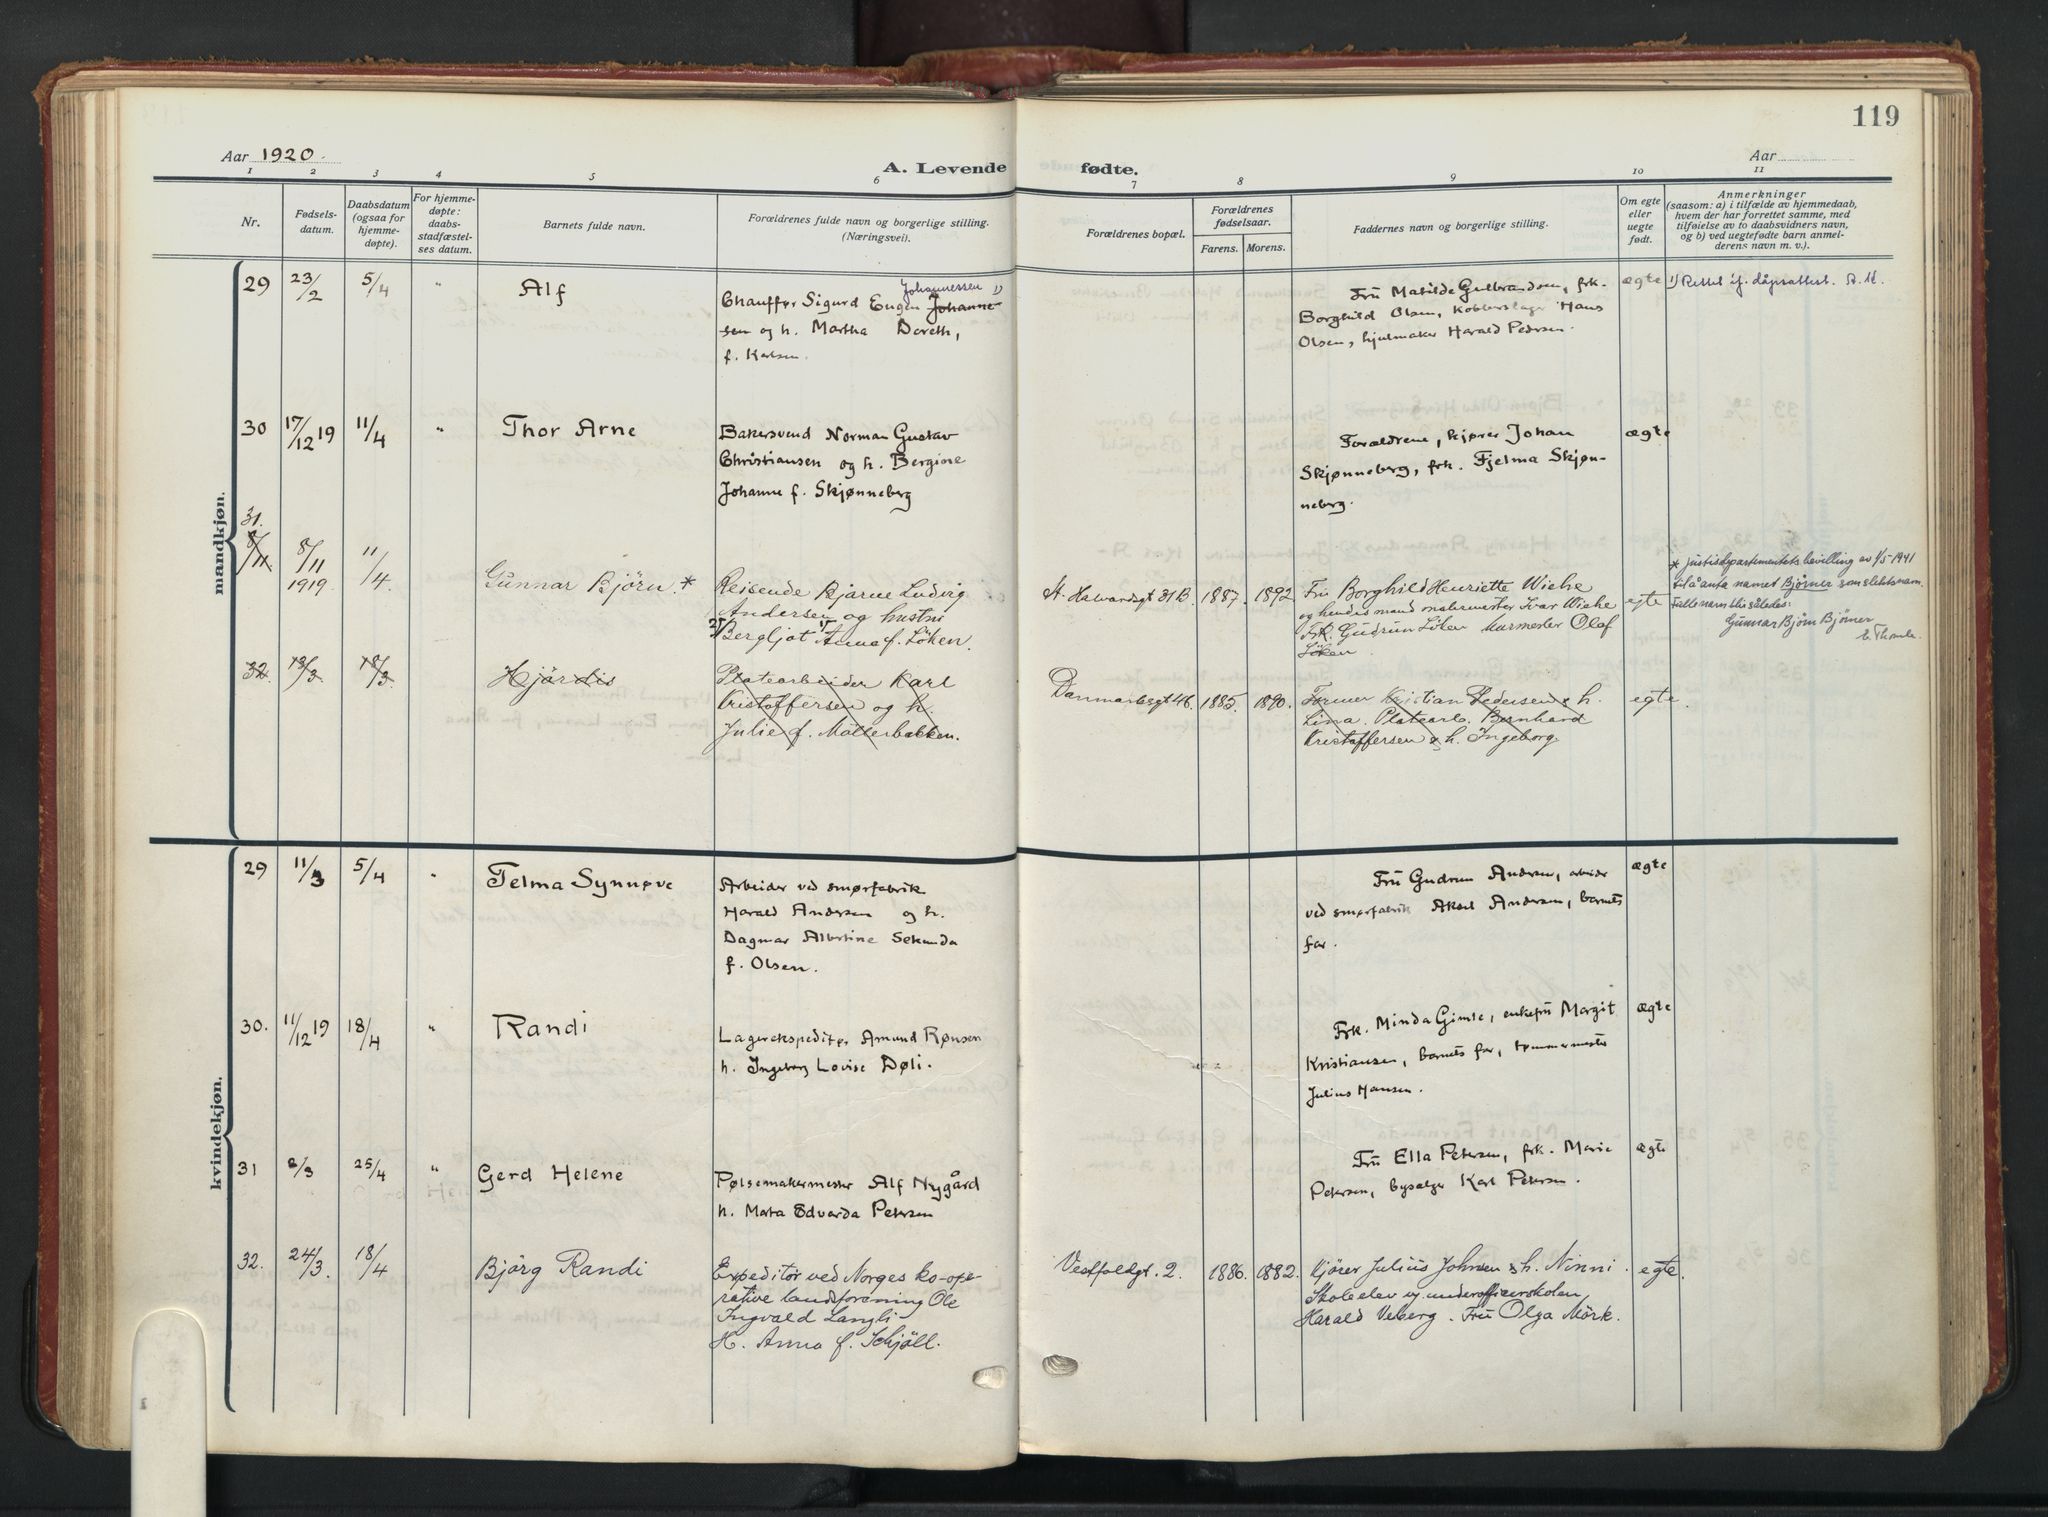 119
Aar 1920.
Aar
A. Levende fødte.
1 2 3 4 5 6 7 8 9 10 11
Nr.
Fødsels-
datum.
Daabsdatum
(ogsaa for
hjemme-
døpte).
For hjemme-
døpte:
daabs-
stadfæstel-
ses datum.
Barnets fulde navn.
Forældrenes fulde navn og borgerlige stilling.
(Næringsvei).
Forældrenes bopæl.
Forældrenes
fødselsaar.
Farens. Morens.
Faddernes navn og borgerlige stilling.
Om egte
eller
uegte
født.
Anmerkninger
(saasom: a) i tilfælde av hjemmedaab,
hvem der har forrettet samme, med
tilføielse av to daabsvidners navn,
og b) ved uegtefødte barn anmel-
derens navn m. v.).
mandkjøn.
29 23/2 5/4 " Alf
Johannessen 1)
Chauffør Sigurd Eugen Johanne-
sen og h. Martha Doreth,
f. Karlsen.
Fru Matilde Gulbrandsen, frk.
Borghild Olsen, kobberslager Hans
Olsen, hjulmaker Harald Pedersen.
ægte
1) Rettet if. dåpsattest. A. M.
30 17/12 19 11/4 " Thor Arne
Bakersvend Norman Gustav
Christiansen og h. Bergine
Johanne f. Skjønneberg
Forældrene, kjører Johan
Skjønneberg, frk. Fjelma Skjøn-
neberg.
ægte
31.
8/11 8/11 1919 11/4 Gunnar Bjørn *
Reisende Bjarne Ludvig
Andersen og hustru
Bergljot Anna f. Löken.
St. Halvardsgt 31 B. 1887. 1892.
Fru Borghild Henriette Wiehe
og hendes mand malermester Ivar Wiehe
Frk. Gudrun Löken Murmester Olaf
Löken.
egte
* Justisdepartementets bevilling av 1/5 1941
til å anta navnet Bjørner som slektsnavn.
Fulle navn blir således:
Gunnar Bjørn Bjørner
32. 18/3 18/3. Hjördis
Platearbeider Karl
Kristoffersen og h.
Julie f. Mölterbakken.
Danmarksgt 46. 1885. 1890.
Former Kristian Pedersen & h.
Lina. Platearb. Bernhard
Kristoffersen & h. Ingeborg.
egte.
kvindekjøn.
29 11/3 5/4 " Telma Synnøve
Arbeider ved smørfabrik
Harald Andersen og h.
Dagmar Albertine Sekunda
f. Olsen.
Fru Gudrun Andersen, arbeider
ved smørfabrik Aksel Andersen, barnets
far.
ægte
30. 11/12 19 18/4 " Randi
Lagerekspeditør Amund Rønsen
h. Ingeborg Lovise Døli.
Frk. Minda Gimle, enkefru Margit
Kristiansen, barnets far, tømmermester
Julius Hansen.
ægte
31 2/3 25/4 " Gerd Helene
Pølsemakermester Alf Nygård
h. Marta Edvarda Petersen
Fru Ella Petersen, frk. Marie
Petersen, bysælger Karl Petersen.
ægte
32. 24/3. 18/4 Bjørg Randi
Expeditör ved Norges ko-ope-
rative landsforening Ole
Ingvald Langli
H. Anna f. Schjöll.
Vestfoldgt. 2. 1886. 1882.
Kjörer Julius Johnsen & h. Ninni.
Skoleelev v. underofficerskolen
Harald Veberg. Fru Olga Mörk.
egte.